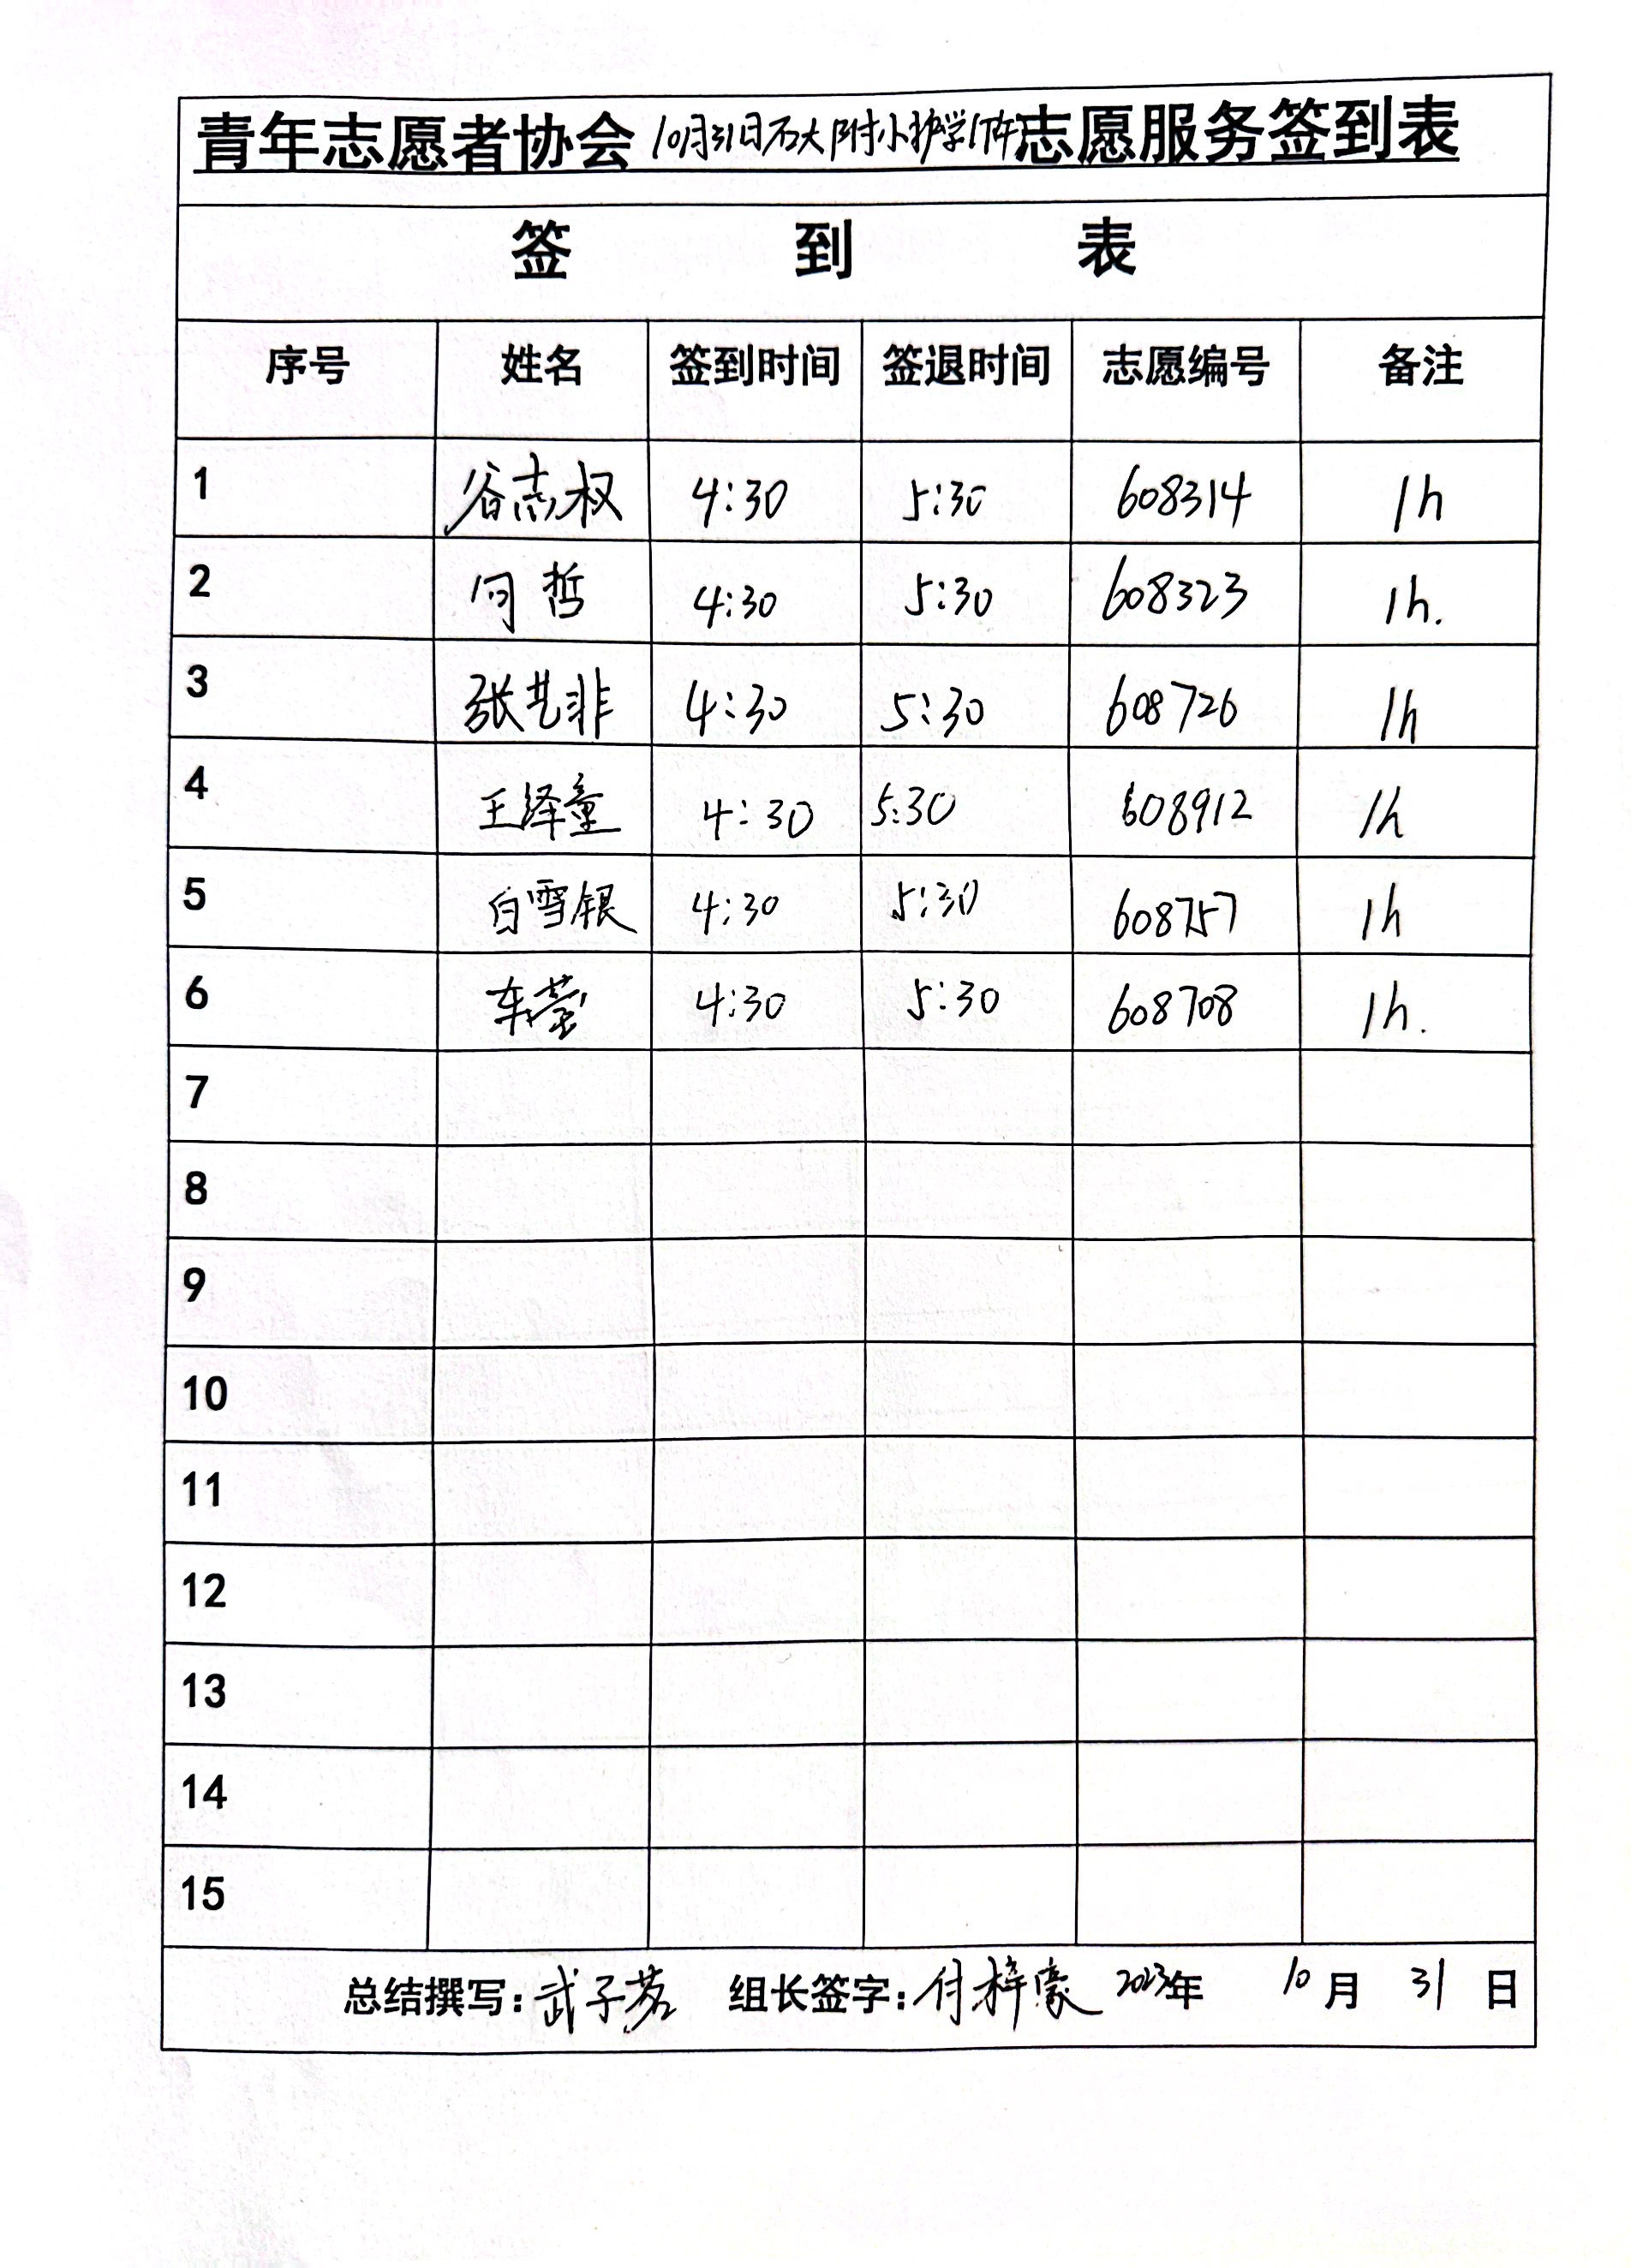 青年志愿者协会10月31日石大附小护学1阵志愿服务签到表
签 到 表
序号 姓名 签到时间 签退时间 志愿编号 备注
1 谷志权 4:30 5:30 608314 1h
2 何哲 4:30 5:30 608323 1h.
3 张艺非 4:30 5:30 608726 1h
4 王泽童 4:30 5:30 608912 1h
5 白雪银 4:30 5:30 608757 1h
6 车莹 4:30 5:30 608708 1h.
7
8
9
10
11
12
13
14
15
总结撰写:武子茗 组长签字:付梓豪 2023年 10月 31日